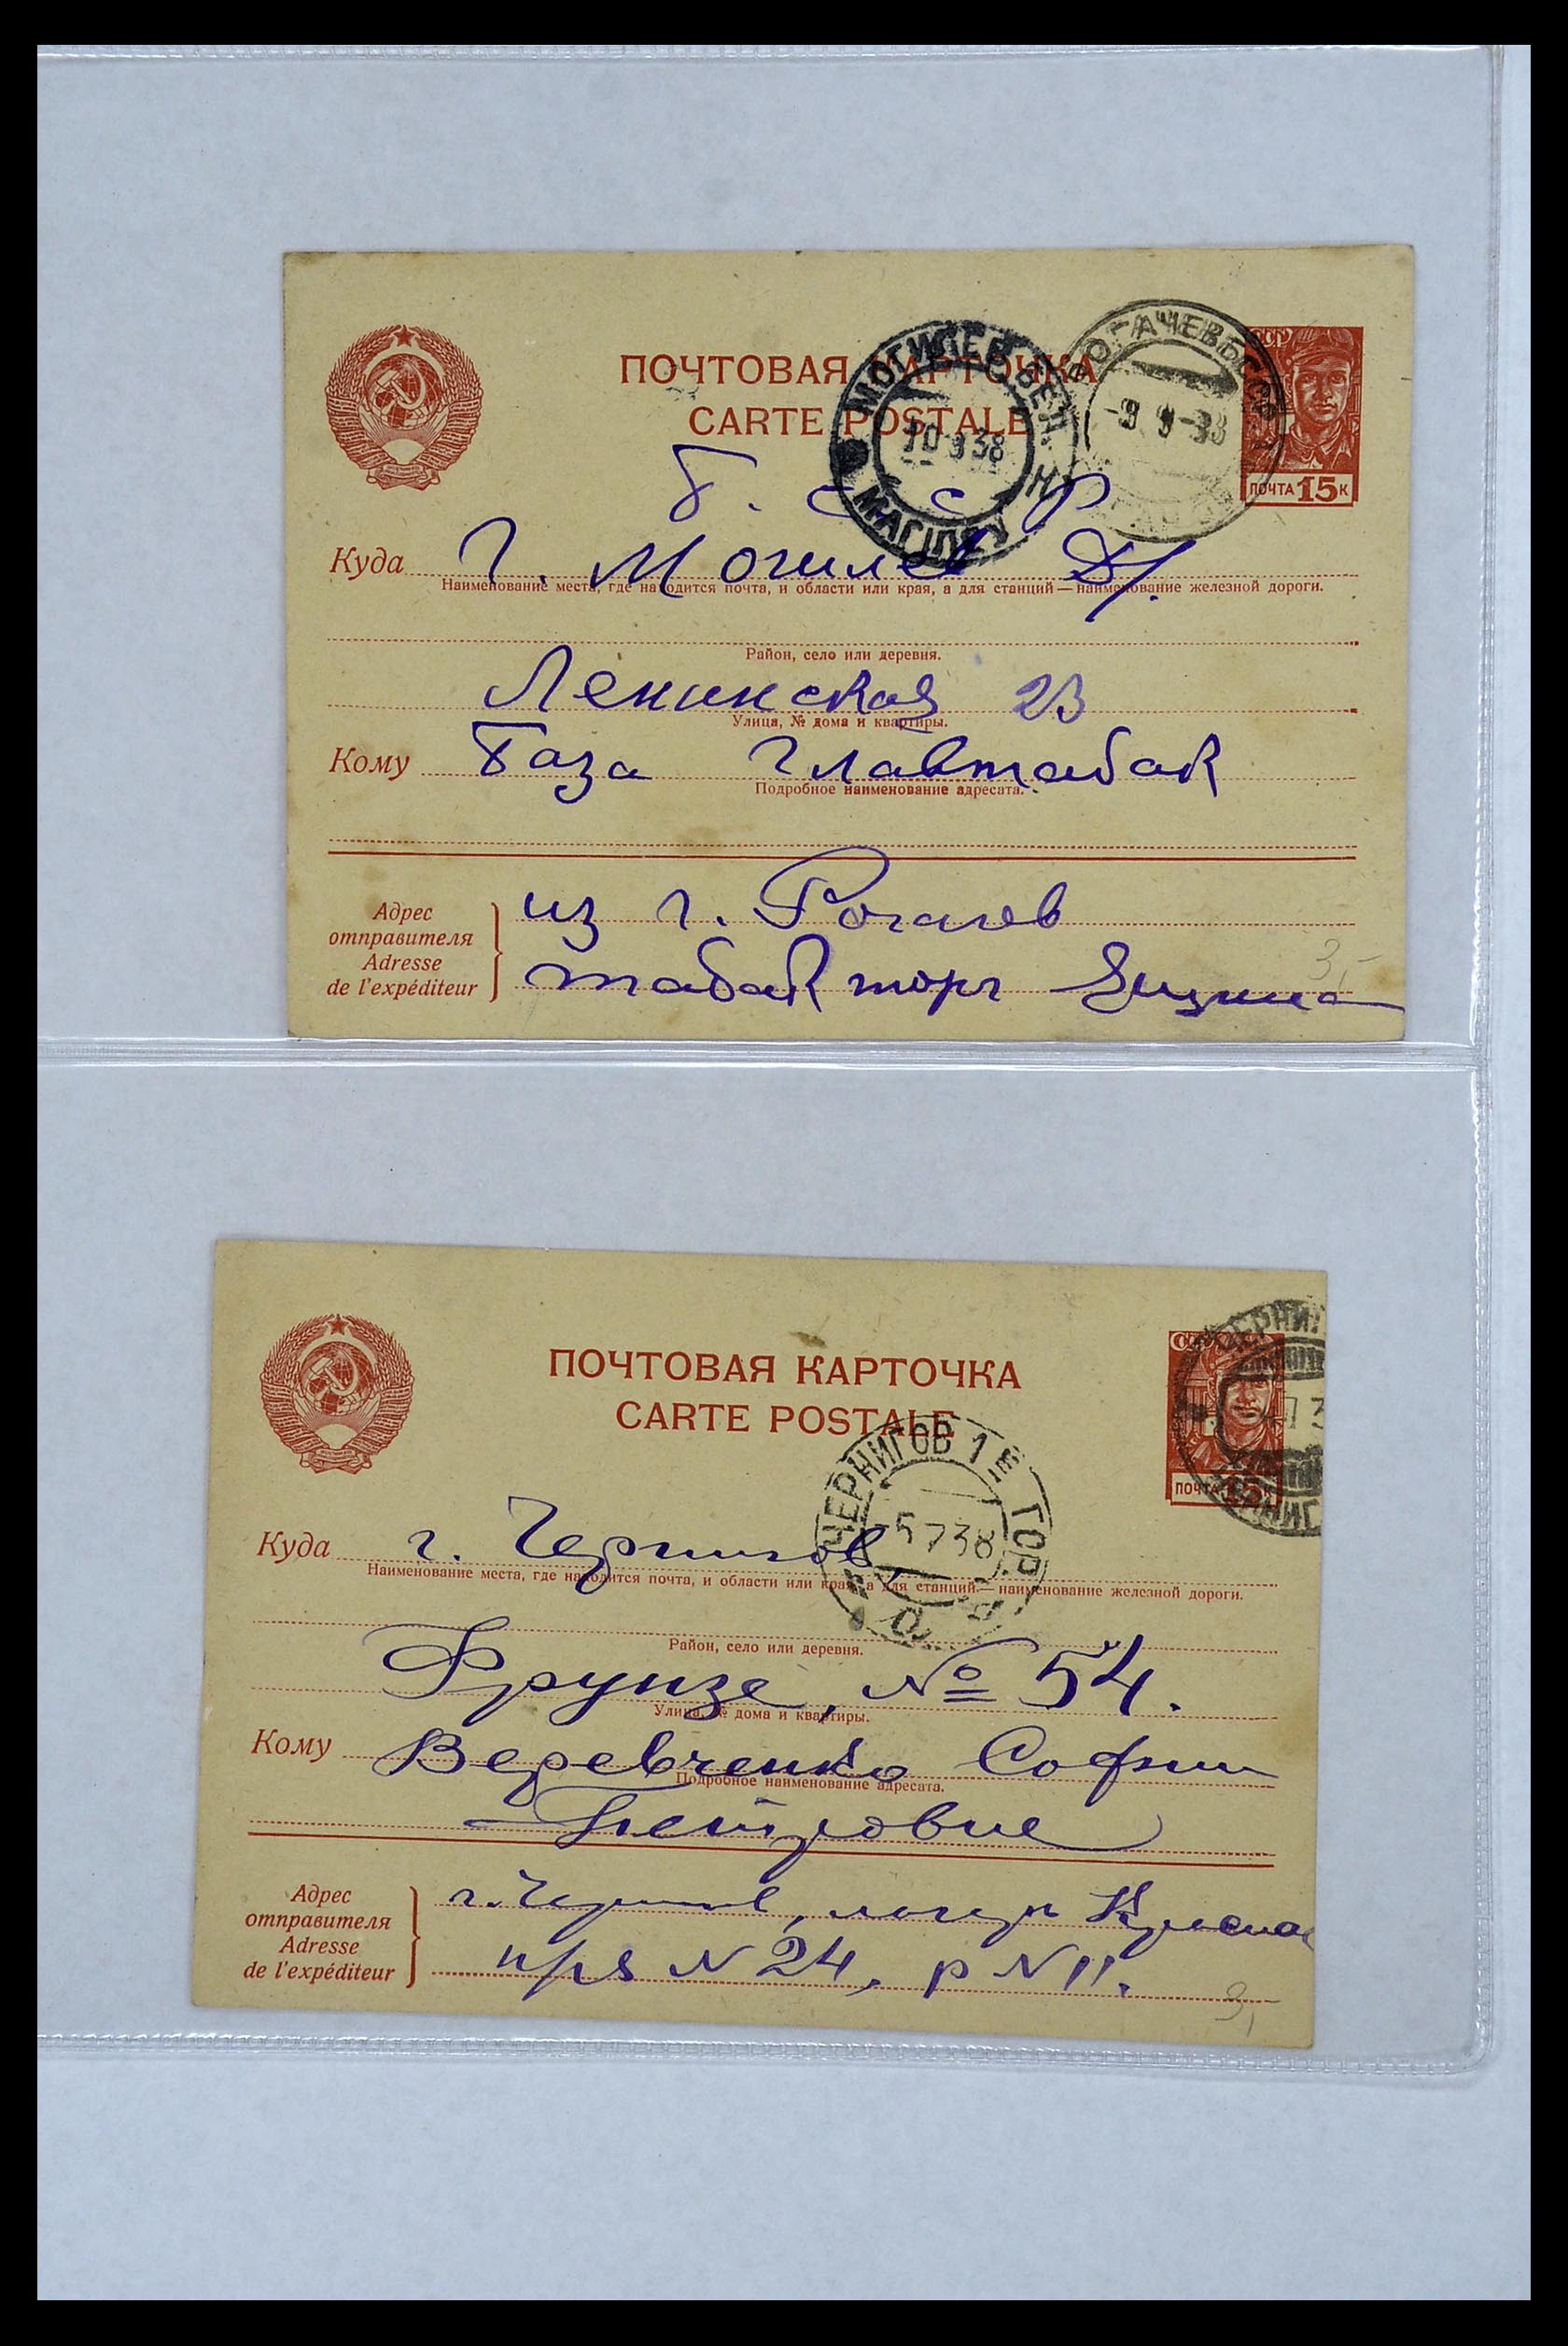 ПОЧТОВАЯ КАРТОЧКА
CARTE POSTALE
СССР
ПОЧТА 15 К
МОГИЛЕВ БЕЛ.
10 9 38
МАГІЛЕЎ
РОГАЧЕВ БССР
-9 9-38
Б. С С Р
Куда г. Могилев Д/.
Наименование места, где находится почта, и области или края, а для станций — наименование железной дороги.
Район, село или деревня.
Ленинская 23
Улица, № дома и квартиры.
Кому База Главтабак
Подробное наименование адресата.
Адрес
отправителя
Adresse
de l'expéditeur
из г. Рогачев
табак торг
3,-
ПОЧТОВАЯ КАРТОЧКА
CARTE POSTALE
ПОЧТА 15 К
ЧЕРНИГ
ЧЕРНИГОВ 1 Е ГОР
-5 7 38
Куда г. Чернигов,
Наименование места, где находится почта, и области или края, а для станций — наименование железной дороги.
Район, село или деревня.
Фрунзе, № 54.
Улица, № дома и квартиры.
Кому Веревченко Софии
Подробное наименование адресата.
Петровне
Адрес
отправителя
Adresse
de l'expéditeur
г. Чернигов, лагерь
N 24, р N 11.
3,-